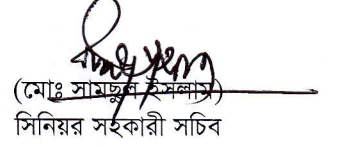 (মোঃ সামছুল ইসলাম)
সিনিয়র সহকারী সচিব